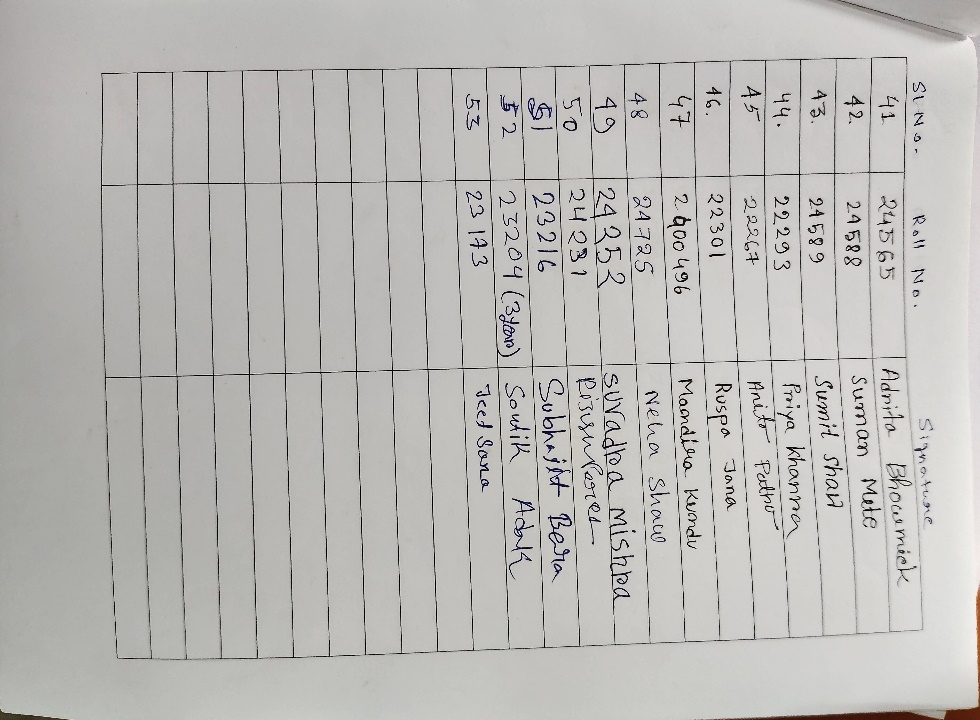 Sl. No. Roll No. Signature
41 24565 Adrita Bhowmick
42. 24588 Suman Mete
43. 24589 Sumit Shaw
44. 22293 Priya Khanna
45 22267 Patho
46. 22301 Ruspa Jana
47 2400496 Mandira Kundu
48 24725 Neha Shaw
49 24252 Suvadra Mishra
50 24231
51 23216 Subhajit Bera
52 23204 (3 year) Soutik Adak
53 23173 Jeet Sana